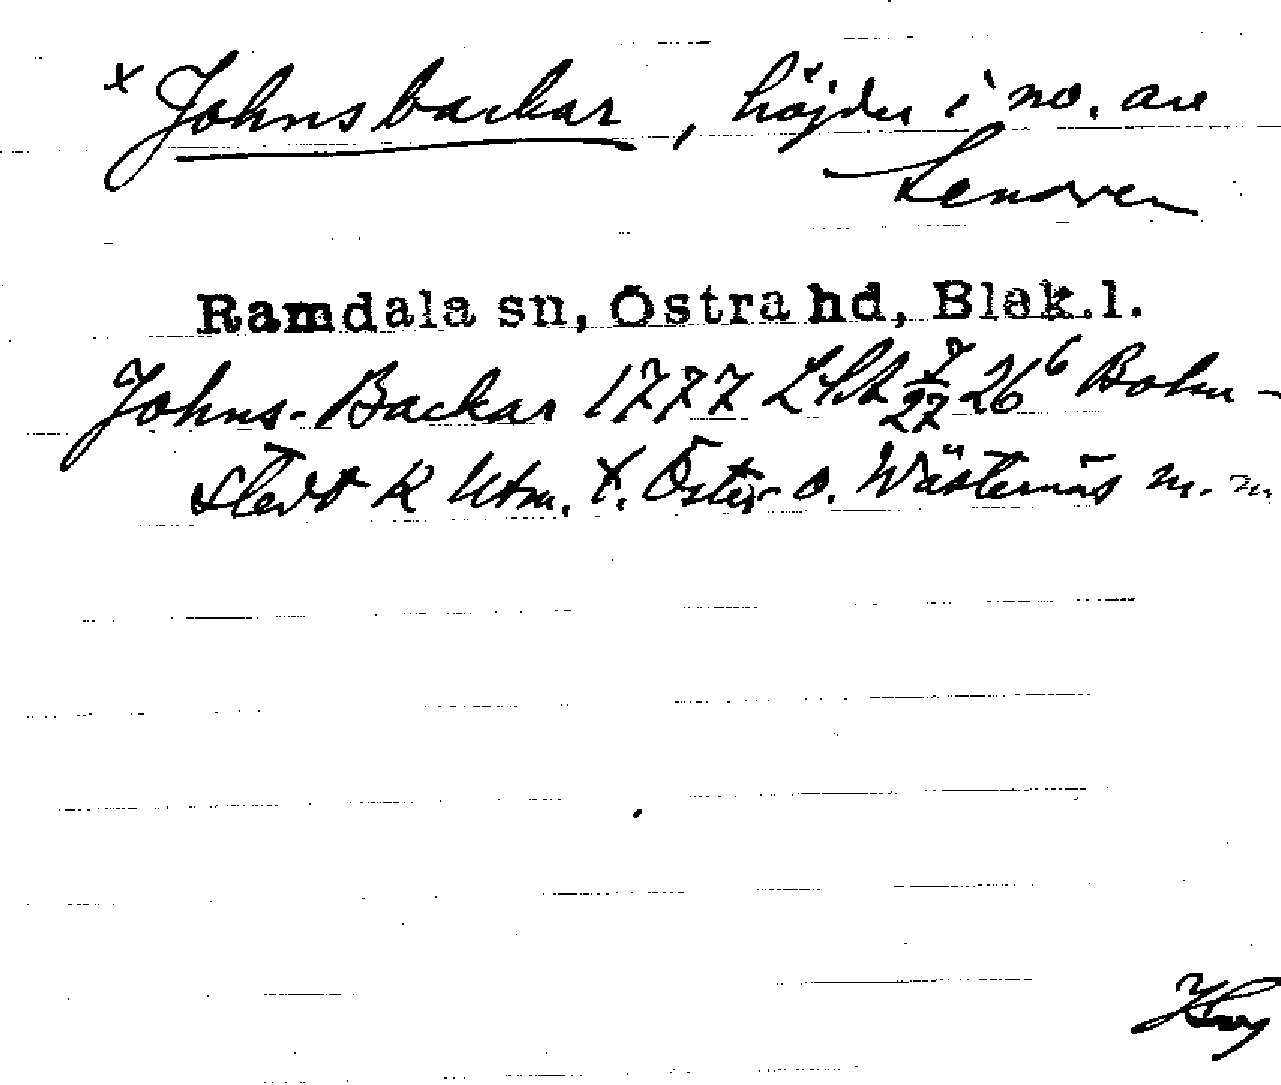 x Johnsbackar, höjder i no. av
Ramdala sn, Östra hd, Blek.l.
Johns-Backar 1777 7/27 26⁶ Bolm-
stedt K Utm. t. Öster- o. Wästernäs m. m.